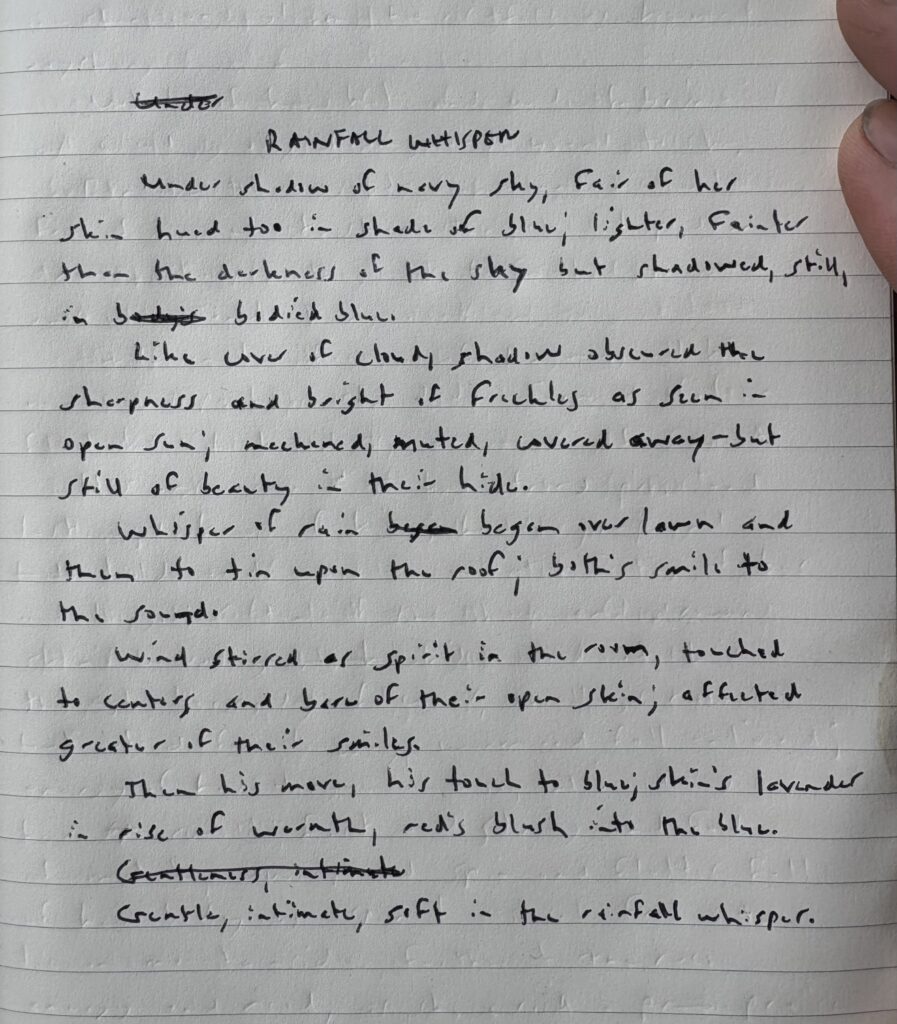 Under
RAINFALL WHISPER
Under shadow of navy sky, fair of her
skin hued too in shade of blue; lighter, fainter
than the darkness of the sky but shadowed, still,
in bodied blue.
Like cover of cloud, shadow obscured the
sharpness and bright of freckles as seen in
open sun; muted, covered away-but
still of beauty in their hide.
Whisper of rain began began over lawn and
then to tin upon the roof; both's smile to
the sound.
Wind stirred as spirit in the room, touched
to and bare of their open skin; affected
greater of their smiles.
Then his move, his touch to blue; skin's lavender
in rise of warmth, red's blush into the blue.
Gentleness, intimate
Gentle, intimate, soft in the rainfall whisper.